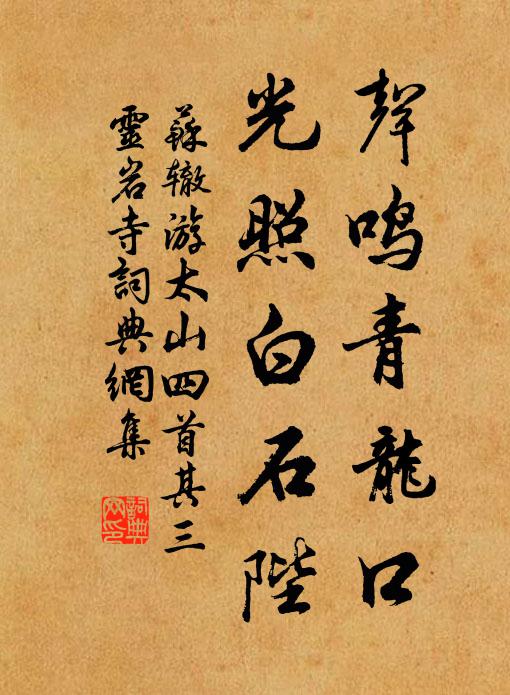 聲鳴青龍口
光照白石陛
蘇辙游太山四首其三
靈岩寺詞典網集
詞典网印